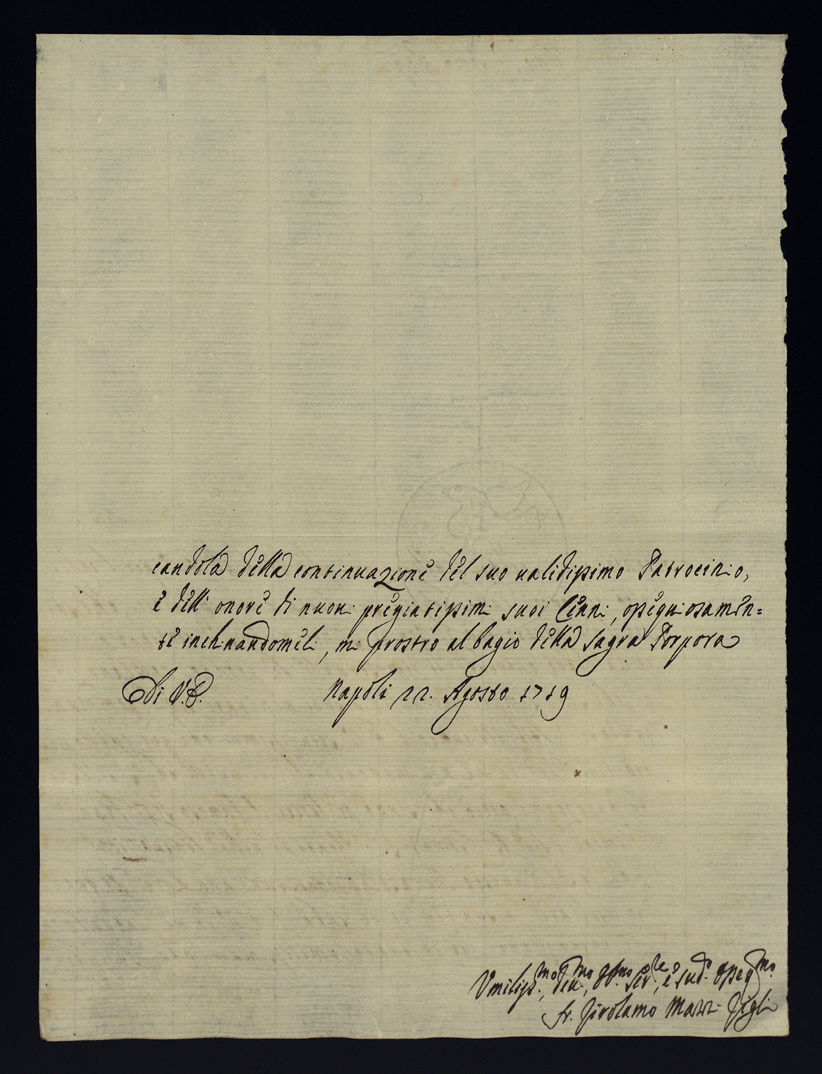 candola della continuazione del suo validissimo Patrocinio,
e dell' onore di nuovi pregiatissimi suoi Cenni, ossequiosamen=
te inchinandomele, mi prostro al bagio della Sagra Porpora
Di V.E. Napoli 22. Agosto 1719
Umiliss.mo, Dev.mo, Obb.mo Ser.re, e Sud.o Osseq.mo
fr. Girolamo Mazzi Figli